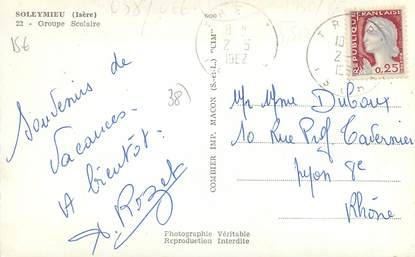 SOLEYMIEU (Isère)
22 - Groupe Scolaire
156
38)
Souvenirs de
Vacances.
A bientôt.
D. Rozet
COMBIER IMP. MACON (S.-&-L.) "CIM"
Photographie Véritable
Reproduction Interdite
1962
REPUBLIQUE FRANÇAISE
0,25
Mr Mme Duboux
10 Rue Prof Tavernier
Lyon 8e
Rhône